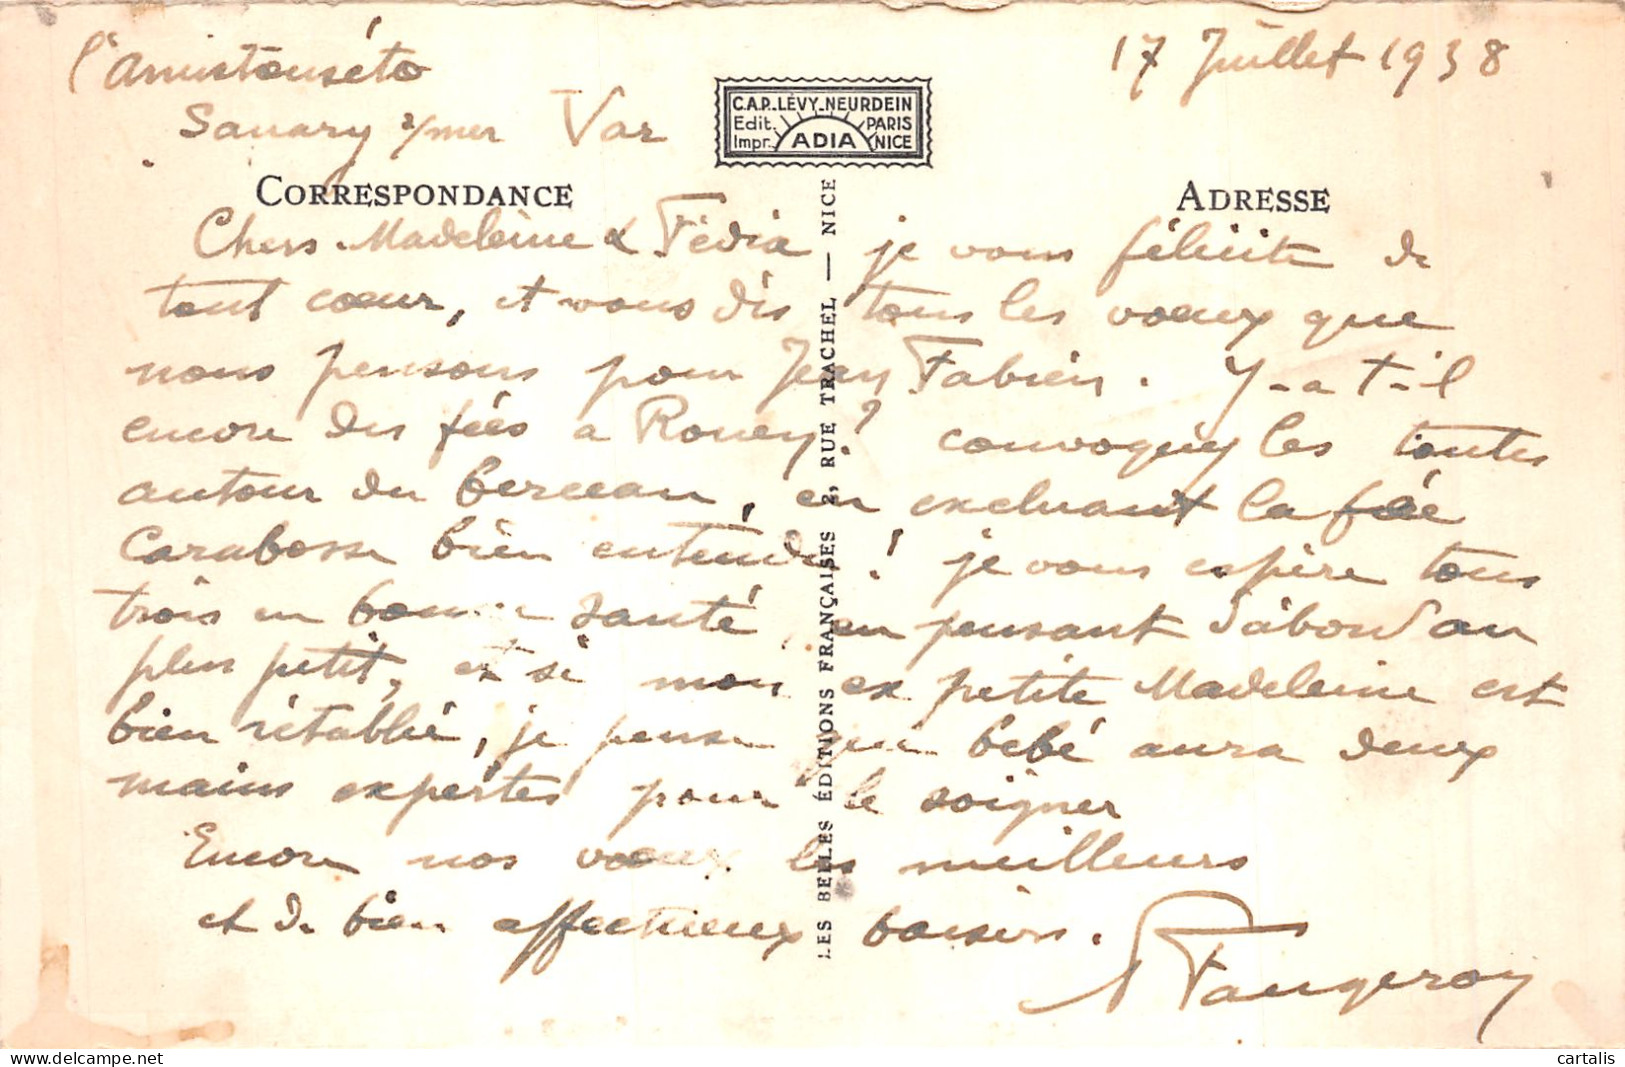 l'Amistouséto
17 Juillet 1938
Sanary s/mer Var
C.A.P. LÉVY-NEURDEIN
Edit. PARIS
Impr. ADIA NICE
CORRESPONDANCE
ADRESSE
Chers Madeleine & Fédia je vous félicite de
tout cœur, et vous dis tous les voeux que
nous pensons pour Jean Fabien. Y-a t-il
encore des fées a Rouen? convoquez les toutes
autour du berceau, en excluant la fée
Carabosse bien entendu! je vous espère tous
trois en bonne santé, en pensant d'abord au
plus petit, et si mon ex petite Madeleine est
bien rétablie, je pense que bébé aura deux
mains expertes pour le soigner
Encore nos voeux les meilleurs
et de bien affectueux baisers.
Faugeroy
LES BELLES ÉDITIONS FRANÇAISES 2, RUE TRACHEL — NICE
cartalis